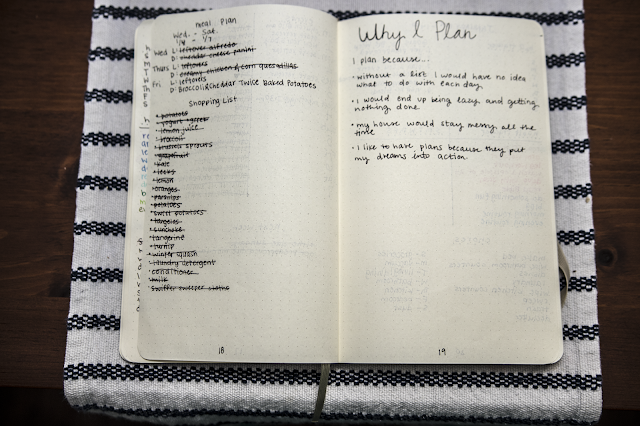 meal Plan
Wed. - Sat.
1/4 - 1/7
Wed L: leftover alfredo
D: cheddar cheese panini
Thurs L: leftovers
D: creamy chicken & corn quesadillas
Fri L: leftovers
D: Broccoli & cheddar Twice Baked Potatoes
Shopping List
• potatoes
• yogurt
• lemon juice
• broccoli
• brussels sprouts
• grapefruit
• kale
• leeks
• lemon
• oranges
• parsnips
• potatoes
• sweet potatoes
• tangelos
• sunchoke
• tangerine
• turnip
• winter squash
• laundry detergent
• conditioner
• milk
• swiffer sweeper cloths
18
Why I Plan
I plan because...
• without a list I would have no idea
what to do with each day.
• I would end up being lazy and getting
nothing done
• my house would stay messy all the
time
• I like to have plans because they put
my dreams into action.
19